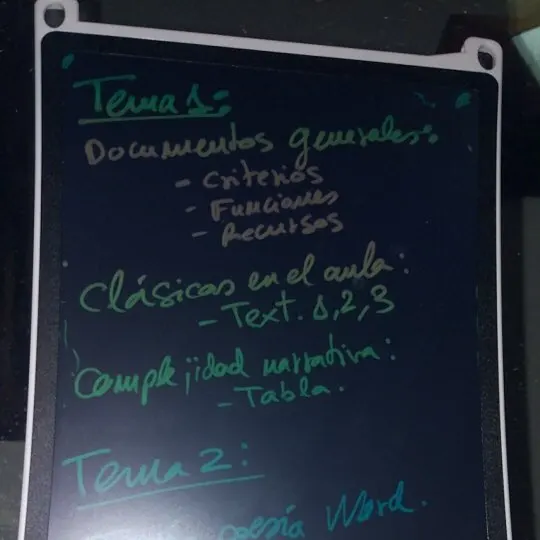 Tema 1:
Documentos generales:
- Criterios
- Funciones
- Recursos
Clásicas en el aula:
- Text. 1, 2, 3
Complejidad narrativa:
- Tabla.
Tema 2:
poesía Word.